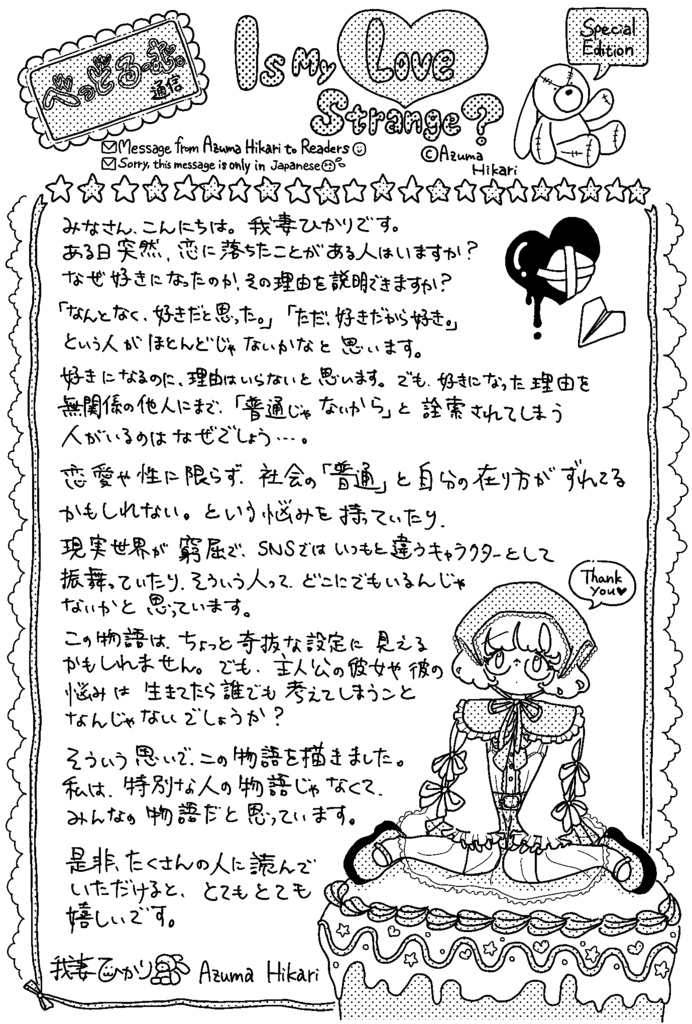 べっどるーむ。
通信
Is My Love
Strange?
Special
Edition
Message from Azuma Hikari to Readers
Sorry, this message is only in Japanese
©Azuma
Hikari
みなさん、こんにちは。我妻ひかりです。
ある日突然、恋に落ちたことがある人はいますか?
なぜ好きになったのか、その理由を説明できますか?
「なんとなく、好きだと思った。」「ただ、好きだから好き。」
という人がほとんどじゃないかなと思います。
好きになるのに、理由はいらないと思います。でも、好きになった理由を
無関係の他人にまで、「普通じゃないから」と詮索されてしまう
人がいるのはなぜでしょう…。
恋愛や性に限らず、社会の「普通」と自分の在り方がずれてる
かもしれない。という悩みを持っていたり、
現実世界が窮屈で、SNSではいつもと違うキャラクターとして
振舞っていたり、そういう人って、どこにでもいるんじゃ
ないかと思っています。
この物語は、ちょっと奇抜な設定に見える
かもしれません。でも、主人公の彼女や彼の
悩みは生きてたら誰でも考えてしまうこと
なんじゃないでしょうか?
そういう思いで、この物語を描きました。
私は、特別な人の物語じゃなくて、
みんなの物語だと思っています。
是非、たくさんの人に読んで
いただけると、とてもとても
嬉しいです。
我妻ひかり Azuma Hikari
Thank
you♥